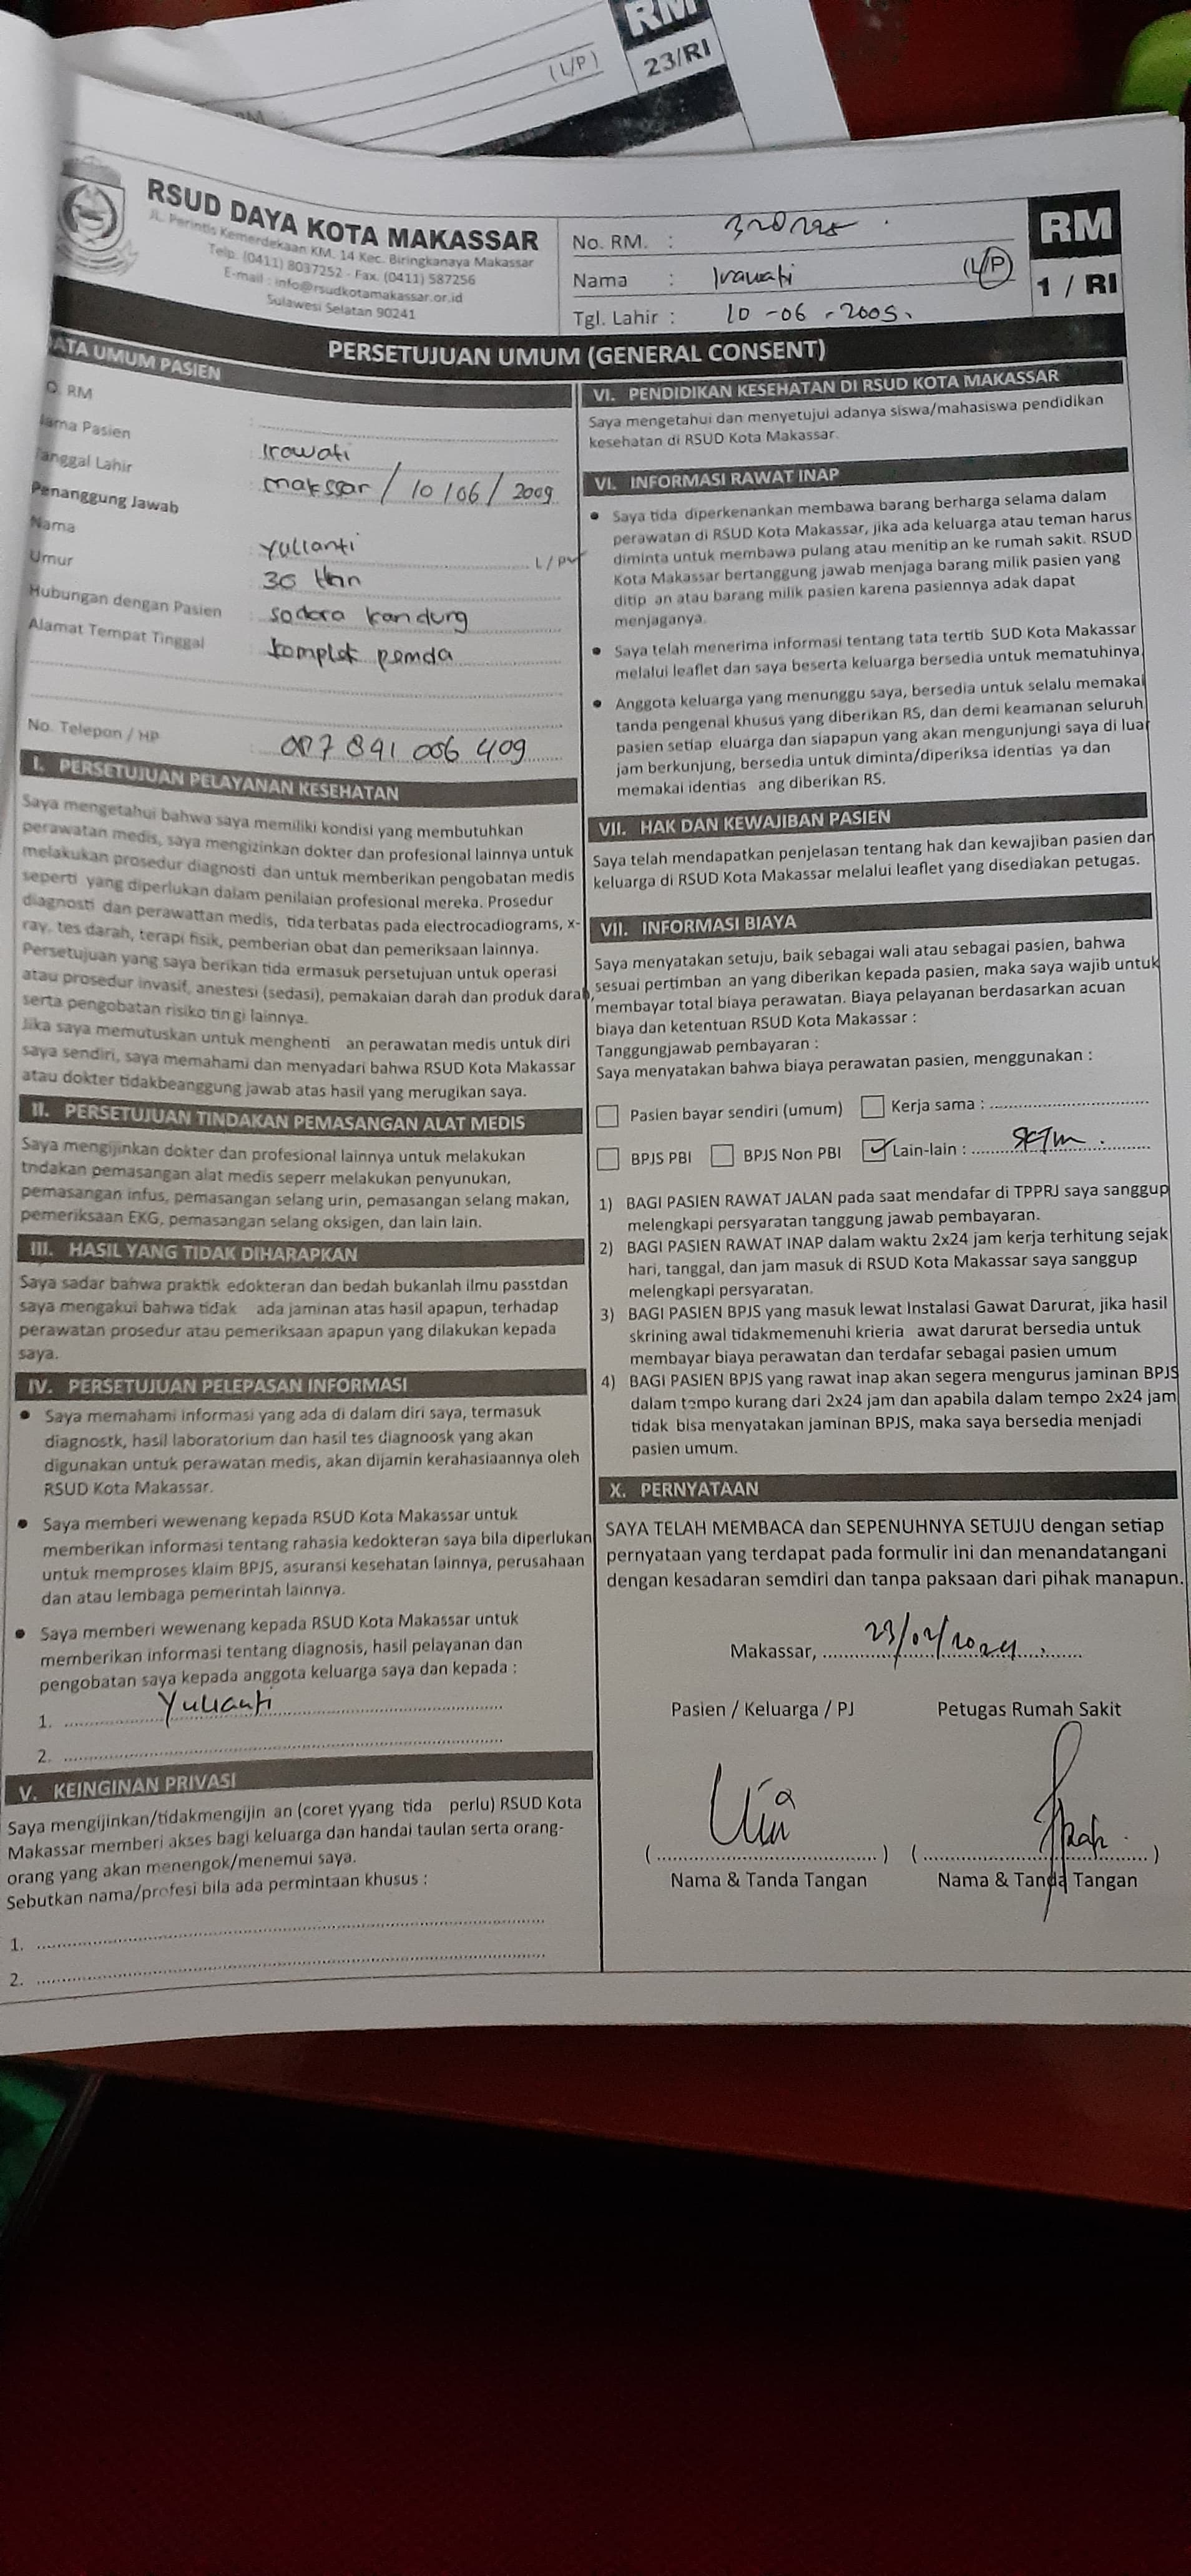 RM
23/RI
(L/P)
RSUD DAYA KOTA MAKASSAR
JL. Perintis Kemerdekaan KM. 14 Kec. Biringkanaya Makassar
Telp. (0411) 8037252 - Fax. (0411) 587256
E-mail : info@rsudkotamakassar.or.id
Sulawesi Selatan 90241
No. RM. :
Nama : Irawati (L/P)
Tgl. Lahir : 10-06-2005.
RM
1 / RI
PERSETUJUAN UMUM (GENERAL CONSENT)
ATA UMUM PASIEN
O. RM
ama Pasien : Irawati
anggal Lahir : makssar / 10/06/2009
Penanggung Jawab
Nama : Yulianti L/P
Umur : 30 thn
Hubungan dengan Pasien : sodara kandung
Alamat Tempat Tinggal : komplek pemda
No. Telepon / HP : 087 891 006 409
I. PERSETUJUAN PELAYANAN KESEHATAN
Saya mengetahui bahwa saya memiliki kondisi yang membutuhkan
perawatan medis, saya mengizinkan dokter dan profesional lainnya untuk
melakukan prosedur diagnosti dan untuk memberikan pengobatan medis
seperti yang diperlukan dalam penilaian profesional mereka. Prosedur
diagnosti dan perawattan medis, tida terbatas pada electrocadiograms, x-
ray, tes darah, terapi fisik, pemberian obat dan pemeriksaan lainnya.
Persetujuan yang saya berikan tida ermasuk persetujuan untuk operasi
atau prosedur invasif, anestesi (sedasi), pemakaian darah dan produk darah,
serta pengobatan risiko tin gi lainnya.
Jika saya memutuskan untuk menghenti an perawatan medis untuk diri
saya sendiri, saya memahami dan menyadari bahwa RSUD Kota Makassar
atau dokter tidakbeanggung jawab atas hasil yang merugikan saya.
II. PERSETUJUAN TINDAKAN PEMASANGAN ALAT MEDIS
Saya mengijinkan dokter dan profesional lainnya untuk melakukan
tndakan pemasangan alat medis seperr melakukan penyunukan,
pemasangan infus, pemasangan selang urin, pemasangan selang makan,
pemeriksaan EKG, pemasangan selang oksigen, dan lain lain.
III. HASIL YANG TIDAK DIHARAPKAN
Saya sadar bahwa praktik edokteran dan bedah bukanlah ilmu passtdan
saya mengakui bahwa tidak ada jaminan atas hasil apapun, terhadap
perawatan prosedur atau pemeriksaan apapun yang dilakukan kepada
saya.
IV. PERSETUJUAN PELEPASAN INFORMASI
• Saya memahami informasi yang ada di dalam diri saya, termasuk
diagnostk, hasil laboratorium dan hasil tes diagnoosk yang akan
digunakan untuk perawatan medis, akan dijamin kerahasiaannya oleh
RSUD Kota Makassar.
• Saya memberi wewenang kepada RSUD Kota Makassar untuk
memberikan informasi tentang rahasia kedokteran saya bila diperlukan
untuk memproses klaim BPJS, asuransi kesehatan lainnya, perusahaan
dan atau lembaga pemerintah lainnya.
• Saya memberi wewenang kepada RSUD Kota Makassar untuk
memberikan informasi tentang diagnosis, hasil pelayanan dan
pengobatan saya kepada anggota keluarga saya dan kepada :
1. Yulianti
2.
V. KEINGINAN PRIVASI
Saya mengijinkan/tidakmengijin an (coret yyang tida perlu) RSUD Kota
Makassar memberi akses bagi keluarga dan handai taulan serta orang-
orang yang akan menengok/menemui saya.
Sebutkan nama/profesi bila ada permintaan khusus :
1.
2.
VI. PENDIDIKAN KESEHATAN DI RSUD KOTA MAKASSAR
Saya mengetahui dan menyetujui adanya siswa/mahasiswa pendidikan
kesehatan di RSUD Kota Makassar.
VI. INFORMASI RAWAT INAP
• Saya tida diperkenankan membawa barang berharga selama dalam
perawatan di RSUD Kota Makassar, jika ada keluarga atau teman harus
diminta untuk membawa pulang atau menitip an ke rumah sakit. RSUD
Kota Makassar bertanggung jawab menjaga barang milik pasien yang
ditip an atau barang milik pasien karena pasiennya adak dapat
menjaganya.
• Saya telah menerima informasi tentang tata tertib SUD Kota Makassar
melalui leaflet dan saya beserta keluarga bersedia untuk mematuhinya
• Anggota keluarga yang menunggu saya, bersedia untuk selalu memakai
tanda pengenal khusus yang diberikan RS, dan demi keamanan seluruh
pasien setiap eluarga dan siapapun yang akan mengunjungi saya di luar
jam berkunjung, bersedia untuk diminta/diperiksa identias ya dan
memakai identias ang diberikan RS.
VII. HAK DAN KEWAJIBAN PASIEN
Saya telah mendapatkan penjelasan tentang hak dan kewajiban pasien dan
keluarga di RSUD Kota Makassar melalui leaflet yang disediakan petugas.
VII. INFORMASI BIAYA
Saya menyatakan setuju, baik sebagai wali atau sebagai pasien, bahwa
sesuai pertimban an yang diberikan kepada pasien, maka saya wajib untuk
membayar total biaya perawatan. Biaya pelayanan berdasarkan acuan
biaya dan ketentuan RSUD Kota Makassar :
Tanggungjawab pembayaran :
Saya menyatakan bahwa biaya perawatan pasien, menggunakan :
Pasien bayar sendiri (umum) Kerja sama :
BPJS PBI BPJS Non PBI Lain-lain :
1) BAGI PASIEN RAWAT JALAN pada saat mendafar di TPPRJ saya sanggup
melengkapi persyaratan tanggung jawab pembayaran.
2) BAGI PASIEN RAWAT INAP dalam waktu 2x24 jam kerja terhitung sejak
hari, tanggal, dan jam masuk di RSUD Kota Makassar saya sanggup
melengkapi persyaratan.
3) BAGI PASIEN BPJS yang masuk lewat Instalasi Gawat Darurat, jika hasil
skrining awal tidakmemenuhi krieria awat darurat bersedia untuk
membayar biaya perawatan dan terdafar sebagai pasien umum
4) BAGI PASIEN BPJS yang rawat inap akan segera mengurus jaminan BPJS
dalam tempo kurang dari 2x24 jam dan apabila dalam tempo 2x24 jam
tidak bisa menyatakan jaminan BPJS, maka saya bersedia menjadi
pasien umum.
X. PERNYATAAN
SAYA TELAH MEMBACA dan SEPENUHNYA SETUJU dengan setiap
pernyataan yang terdapat pada formulir ini dan menandatangani
dengan kesadaran semdiri dan tanpa paksaan dari pihak manapun.
Makassar, 23/02/2024
Pasien / Keluarga / PJ Petugas Rumah Sakit
Uia
( ) ( )
Nama & Tanda Tangan Nama & Tanda Tangan